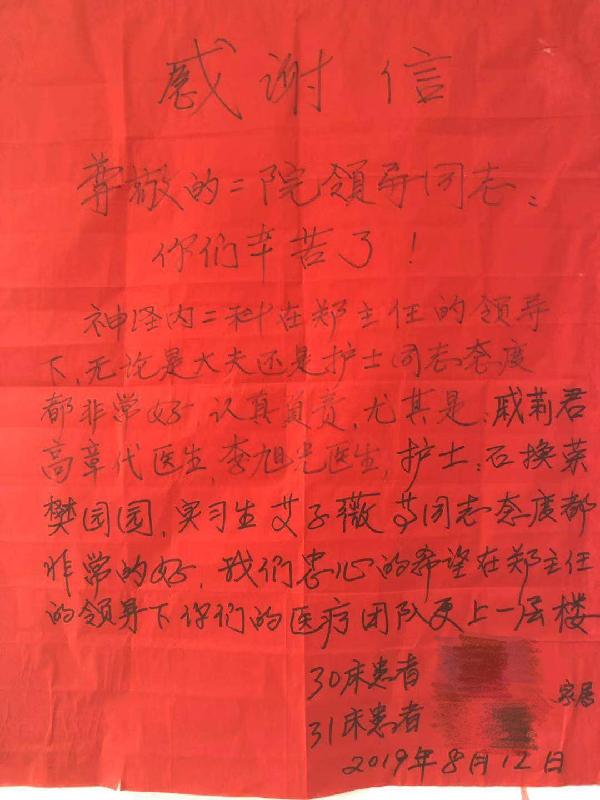 感谢信
尊敬的二院领导同志:
你们辛苦了!
神经内二科在郑主任的领导
下,无论是大夫还是护士同志态度
都非常好,认真负责,尤其是:戚莉君
高章代医生,李旭光医生,护士:石换荣
樊园园,实习生艾子薇等同志态度都
非常的好,我们忠心的希望在郑主任
的领导下你们的医疗团队更上一层楼
30床患者
家居
31床患者
2019年8月12日